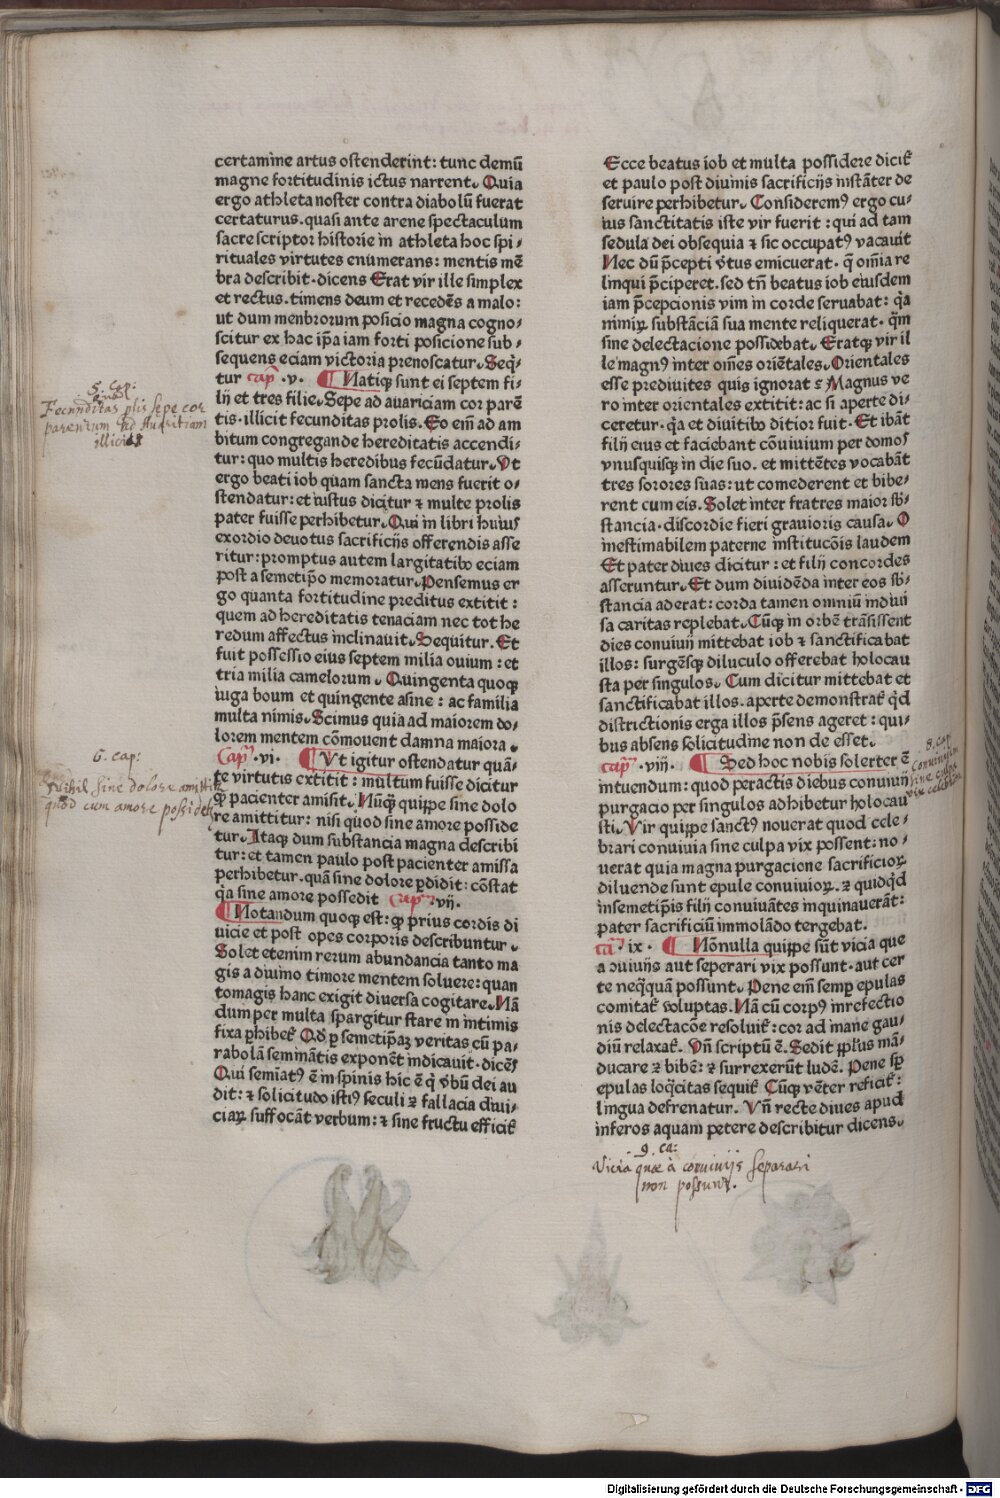 certamine artus ostenderint: tunc demū
magne fortitudinis ictus narrent. Quia
ergo athleta noster contra diabolū fuerat
certaturus. quasi ante arene spectaculum
sacre scriptor historie in athleta hoc spi⸗
rituales virtutes enumerans: mentis mē
bra describit. dicens Erat vir ille simplex
et rectus. timens deum et recedēs a malo:
ut dum menbrorum posicio magna cogno⸗
scitur ex hac ip̄a iam forti posicione sub⸗
sequens eciam victoria prenoscatur. Seq̄⸗
tur cap̄ ·v· ¶ Natiq̄ sunt ei septem fi⸗
lij et tres filie. Sepe ad avariciam cor parē
tis. illicit fecunditas prolis. Eo em̄ ad am
bitum congregande hereditatis accendi⸗
tur: quo multis heredibus fecūdatur. Ut
ergo beati iob quam sancta mens fuerit o⸗
stendatur: et iustus dicitur ⁊ multe prolis
pater fuisse perhibetur. Qui in libri huius
exordio deuotus sacrificijs offerendis asse
ritur: promptus autem largitatibꝰ eciam
post a semetip̄o memoratur. Pensemus er
go quanta fortitudine preditus extitit:
quem ad hereditatis tenaciam nec tot he
redum affectus inclinauit. Sequitur. Et
fuit possessio eius septem milia ouium: et
tria milia camelorum. Quingenta quoqꝫ
iuga boum et quingente asine: ac familia
multa nimis. Scimus quia ad maiorem do⸗
lorem mentem cōmouent damna maiora.
Cap̄ ·vi· ¶ Vt igitur ostendatur quā⸗
te virtutis extitit: multum fuisse dicitur
ꝙ pacienter amisit. Nūqꝫ quip̄pe sine dolo
re amittitur: nisi quod sine amore posside
tur. Itaqꝫ dum substancia magna describi
tur: et tamen paulo post pacienter amissa
perhibetur. quā sine dolore ꝑdidit: cōstat
q̄a sine amore possedit cap̄ vij.
¶ Notandum quoqꝫ est: ꝙ prius cordis di
uicie et post opes corporis describuntur.
Solet etenim rerum abundancia tanto ma
gis a diuino timore mentem soluere: quan
tomagis hanc exigit diversa cogitare. Nā
dum per multa spargitur stare in intimis
fixa ꝓhibetᷣ. Qd̄ ꝑ semetip̄aꝫ veritas cū pa⸗
rabolā seminātis exponēt indicauit. dicēs
Qui semiatꝰ ē in spinis hic ē q̄ v̄bū dei au
dit: ⁊ solicitudo istiꝰ seculi ⁊ fallacia diui⸗
ciaꝝ suffocāt verbum: ⁊ sine fructu efficitᷣ
Ecce beatus iob et multa possidere dicitᷣ
et paulo post diuinis sacrificijs instāter de
seruire perhibetur. Consideremꝰ ergo cu⸗
ius sanctitatis iste vir fuerit: qui ad tam
sedula dei obsequia ⁊ sic occupatꝰ vacauit
Nec dū p̄cepti v̄tus emicuerat. q̄ om̄ia re
linqui p̄ciperet. sed tn̄ beatus iob eiusdem
iam p̄cepcionis vim in corde seruabat: q̄a
nimiꝝ substāciā sua mente reliquerat. q̄m
sine delectacione possidebat. Eratqꝫ vir il
le magnꝰ inter om̄es oriētales. Orientales
esse prediuites quis ignorat? Magnus ve
ro inter orientales extitit: ac si aperte di⸗
ceretur. q̄a et diuitibꝰ ditior fuit. Et ibāt
filij eius et faciebant cōuiuium per domos
vnusquisqꝫ in die suo. et mittētes vocabāt
tres sorores suas: ut comederent et bibe⸗
rent cum eis. Solet inter fratres maior sb̄⸗
stancia. discordie fieri grauioris causa. O
inestimabilem paterne institucōis laudem
Et pater diues dicitur: et filij concordes
asseruntur. Et dum diuidēda inter eos sb̄⸗
stancia aderat: corda tamen omniū indiui
sa caritas replebat. Cūqꝫ in orbē trāsissent
dies conuiuij mittebat iob ⁊ sanctificabat
illos: surgēsqꝫ diluculo offerebat holocau
sta per singulos. Cum dicitur mittebat et
sanctificabat illos. aperte demonstratᷣ q̄d
districtionis erga illos p̄sens ageret: qui⸗
bus absens solicitudine non de esset.
cap̄ ·viij· ¶ Sed hoc nobis solerter ē
intuendum: quod peractis diebus conuiuij
purgacio per singulos adhibetur holocau
sti. Vir quip̄pe sanctꝰ nouerat quod cele⸗
brari conuiuia sine culpa vix possent: no⸗
uerat quia magna purgacione sacrificioꝝ
diluende sunt epule conuiuioꝝ. ⁊ quidq̄d
insemetip̄is filij conuiuātes inquinauerāt:
pater sacrificiū immolādo tergebat.
ca ·ix· ¶ Nōnulla quip̄pe sūt vicia que
a ꝯuiuijs aut seperari vix possunt. aut cer
te neq̄quā possunt. Pene em̄ semꝑ epulas
comitatᷣ voluptas. Nā cū corpꝰ in refectio
nis delectacōe resoluitᷣ: cor ad inane gau⸗
diū relaxatᷣ. Vn̄ scriptū ē. Sedit pp̄lus mā⸗
ducare ⁊ bibeř: ⁊ surrexerūt luděř. Pene sꝑ
epulas loq̄citas sequitᷣ Cūqꝫ vēter reficitᷣ:
lingua defrenatur. Vn̄ recte diues apud
inferos aquam petere describitur dicens.
5. Cap:
Fecunditas plis sepe cor
parentum ad Auaritiam
illicit
6. cap:
Nihil sine dolore amittit
quod cum amore possidet
8. cap
Conuiuium
sine culpa
vix celebrat
9. ca:
Vicia quæ à conuiuijs separari
non possunt.
Digitalisierung gefördert durch die Deutsche Forschungsgemeinschaft - DFG